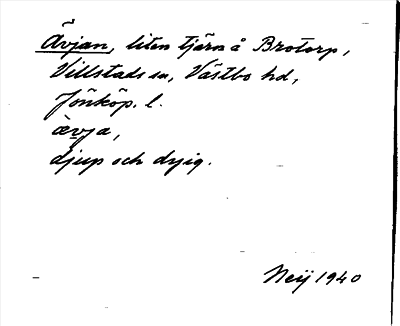 Ävjan, liten tjärn å Brotorp,
Villstads sn, Västbo hd,
Jönköp. l.
àvja,
djup och dyig.
Neij 1940